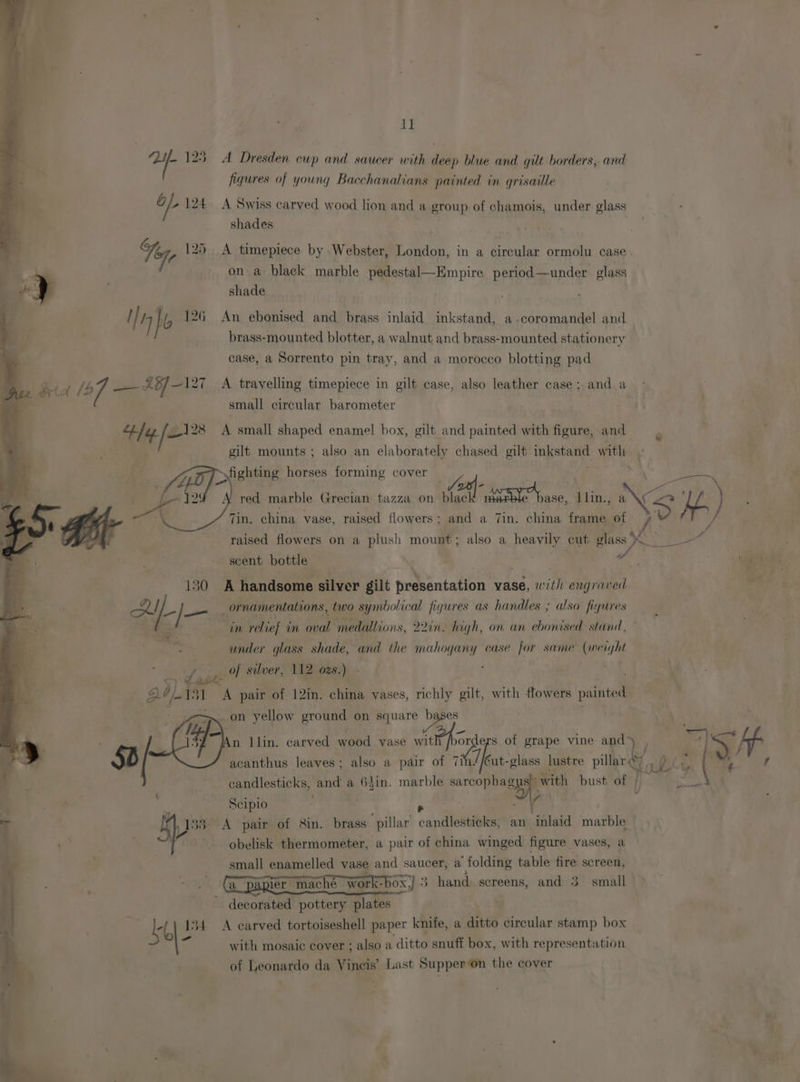 11
123 A Dresden cup and saucer with deep blue and gilt borders, and
figures of young Bacchanalians painted in grisaille
6/- 124 A Swiss carved wood lion and a group of chamois, under glass
shades
125 A timepiece by Webster, London, in a circular ormolu case
on a black marble pedestal—Empire period—under glass
shade
126 An ebonised and brass inlaid inkstand, a coromandel and
brass-mounted blotter, a walnut and brass-mounted stationery
case, a Sorrento pin tray, and a morocco blotting pad
127 A travelling timepiece in gilt case, also leather case; and a
small circular barometer
128 A small shaped enamel box, gilt and painted with figure, and
gilt mounts; also an elaborately chased gilt inkstand with
fighting horses forming cover
129 A red marble Grecian tazza on black marble base, 11in., a
7in. china vase, raised flowers; and a 7in. china frame of
raised flowers on a plush mount; also a heavily cut glass
scent bottle
130 A handsome silver gilt presentation vase, with engraved
ornamentations, two symbolical figures as handles; also figures
in relief in oval medallions, 22in. high, on an ebonised stand,
under glass shade, and the mahogany case for same (weight
of silver, 112 ozs.)
131 A pair of 12in. china vases, richly gilt, with flowers painted
on yellow ground on square bases
132 An 11in. carved wood vase with borders of grape vine and
acanthus leaves; also a pair of 7in. cut-glass lustre pillar
candlesticks, and a 6½in. marble sarcophagus with bust of
Scipio
133 A pair of 8in. brass pillar candlesticks, an inlaid marble
obelisk thermometer, a pair of china winged figure vases, a
small enamelled vase and saucer, a folding table fire screen,
(a papier maché work-box,) 3 hand screens, and 3 small
decorated pottery plates
134 A carved tortoiseshell paper knife, a ditto circular stamp box
with mosaic cover; also a ditto snuff box, with representation
of Leonardo da Vincis' Last Supper on the cover